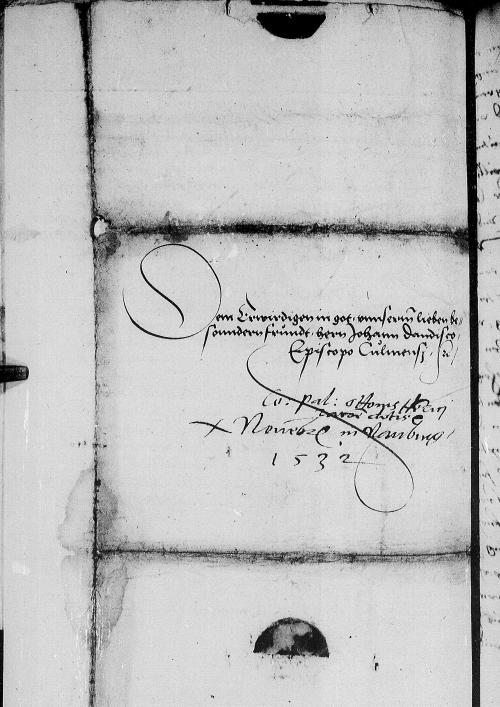 Dem Erwirdigen in got, unnserm lieben be¬
sonndern frundt, hern Johann Dandisco
Episcopo Culmensi
Co. Pal: Ottonis Henrici

X Novebr in Neuburg
1532